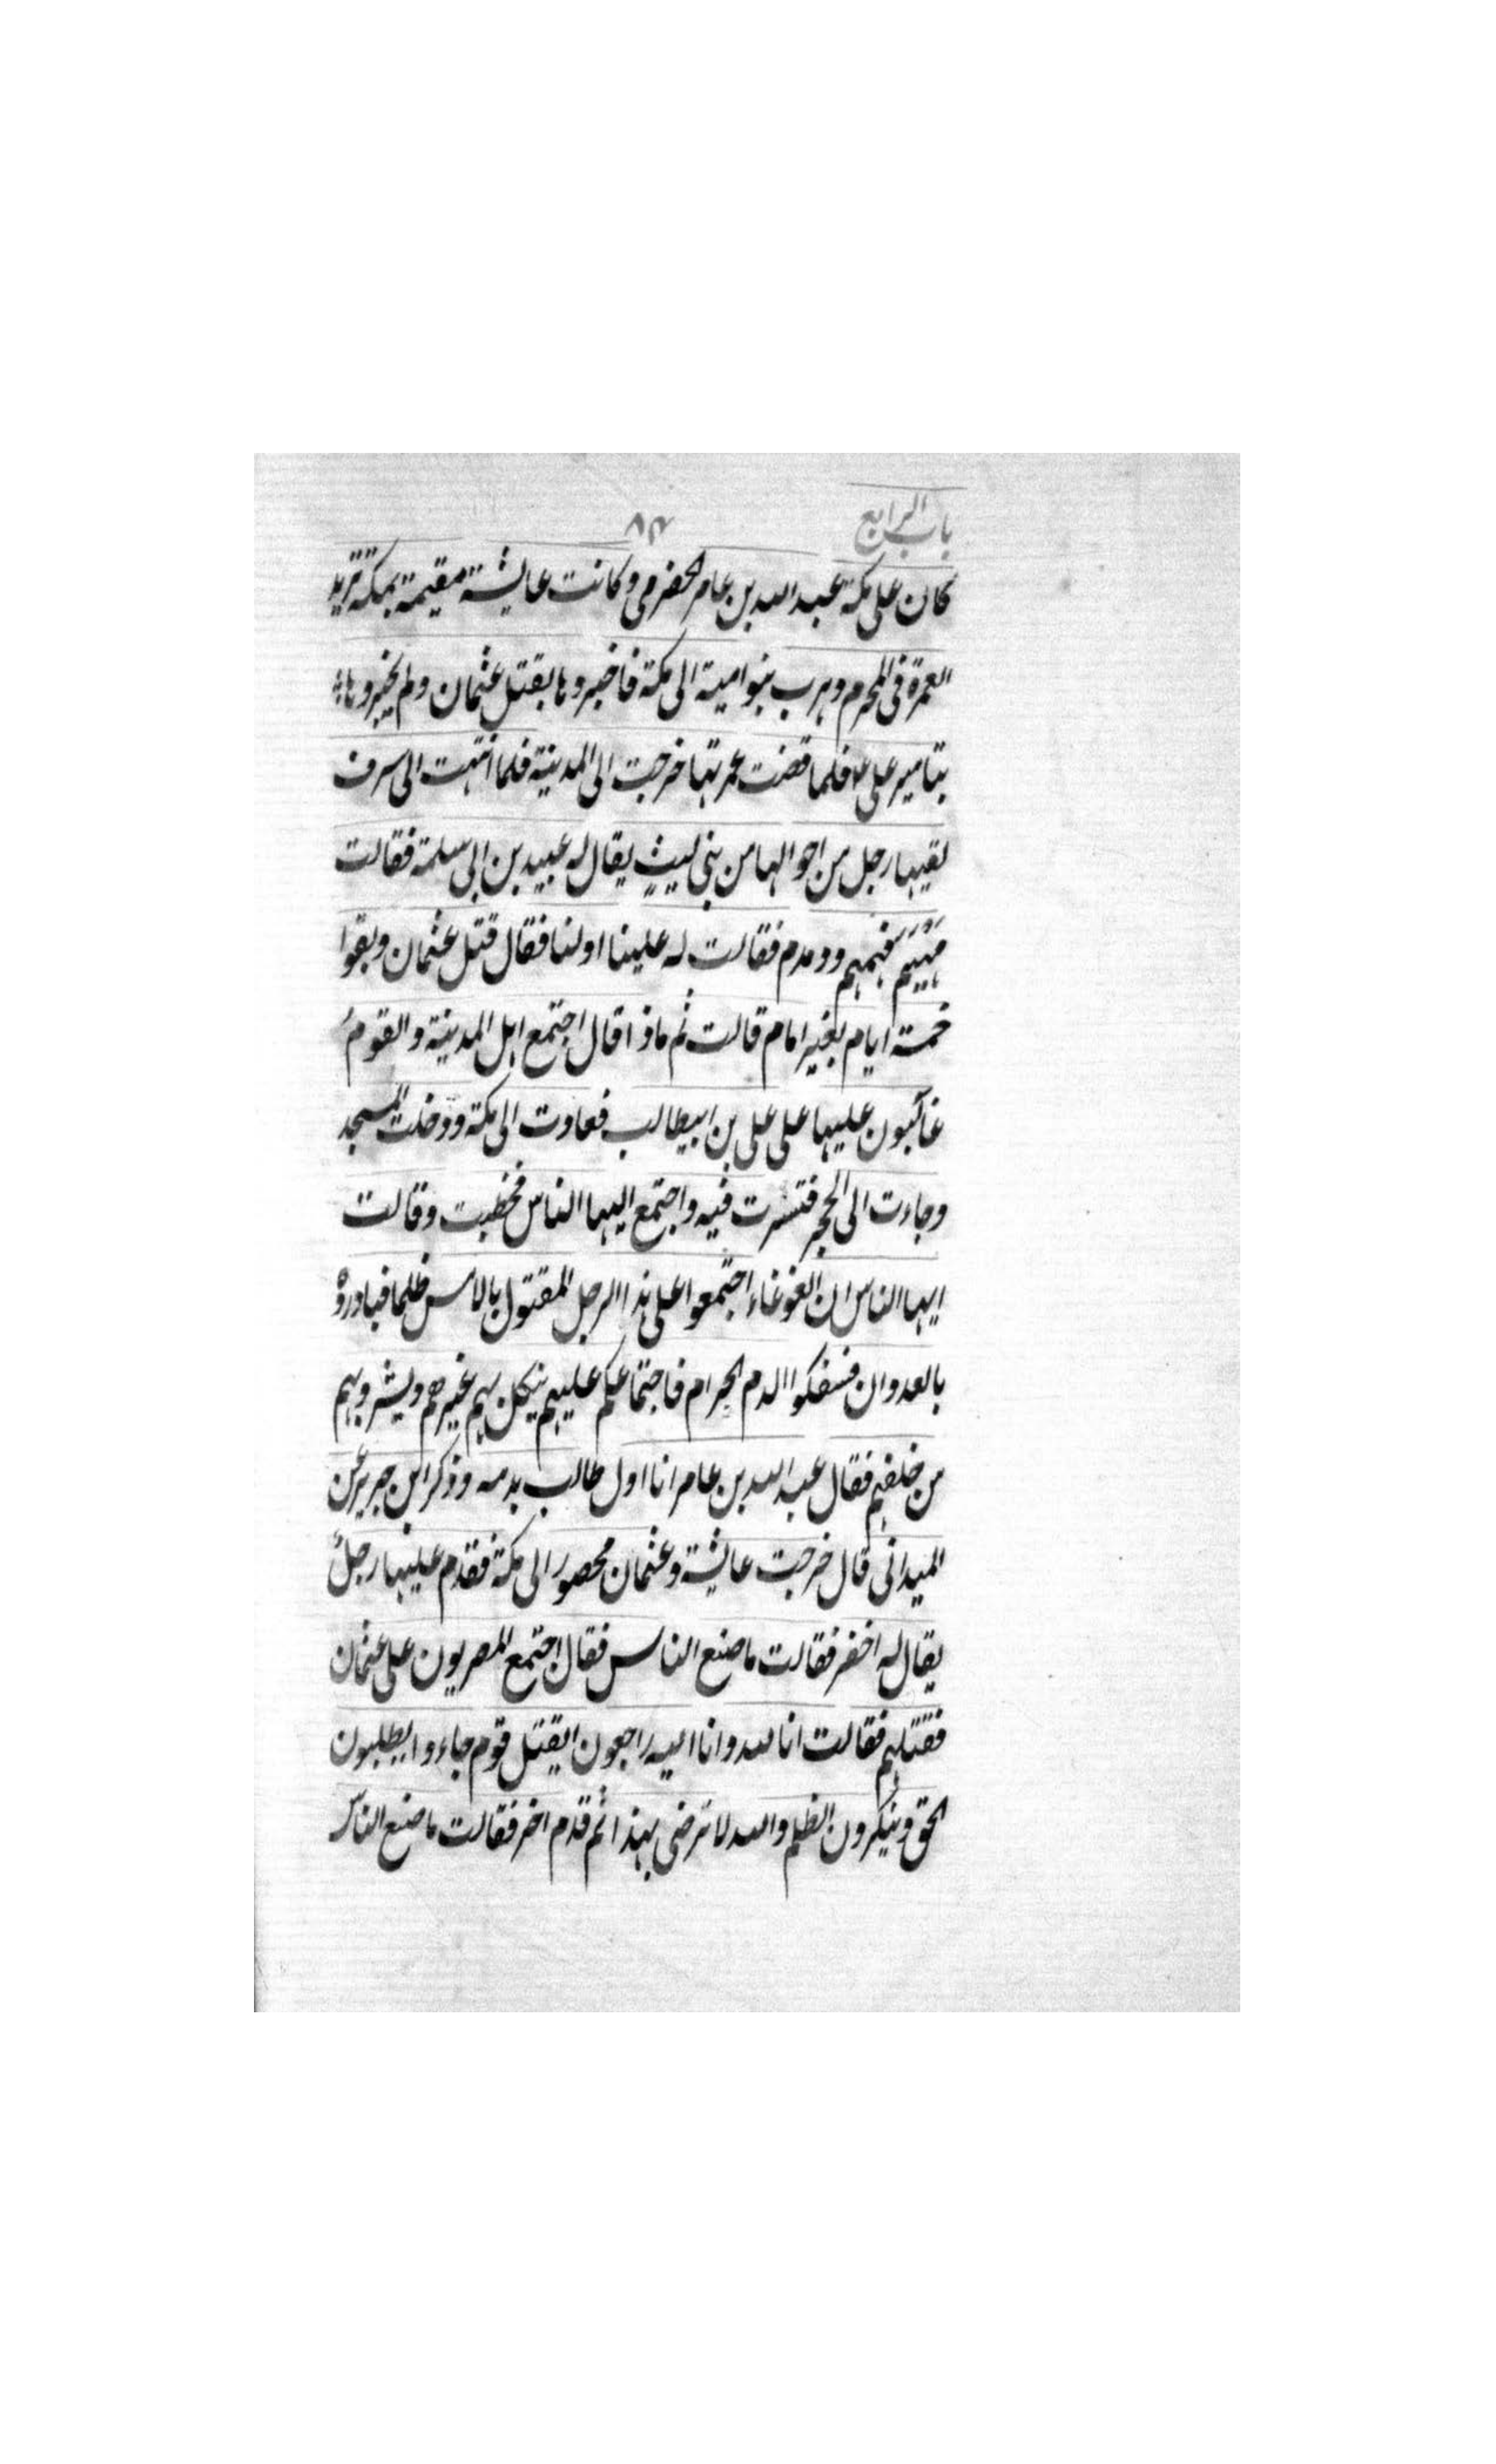 باب الرابع
كان على مكة عبد الله بن عامر الحضرمى وكانت عايشة مقيمة بمكة تريد
العمرة فى المحرم وهرب بنوامية الى مكة فاخبروها بقتل عثمان ولم يخبروها
بتامير على فلما قضت عمرتها خرجت الى المدينة فلما انتهت الى سرف
لقيها رجل من اخوالها من بنى ليث يقال له عبيد بن ابى سلمة فقالت
مهيم ودمدم فقالت له علينا اولنا فقال قتل عثمان وبقوا
خمسة ايام بغير امام قالت ثم ماذا قال اجتمع اهل المدينة والقوم
غالبون عليها على على بن ابيطالب فعادت الى مكة ودخلت المسجد
وجاءت الى الحجر فتسترت فيه واجتمع اليها الناس فخطبت وقالت
ايها الناس ان الغوغاء اجتمعوا على هذا الرجل المقتول بالامس ظلما فبادروه
بالعدوان فسفكوا الدم الحرام فاجتماعكم عليهم ينكل بهم غيرهم ويشرد بهم
من خلفهم فقال عبد الله بن عامر انا اول طالب بدمه وذكر ابن جرير عن
الميدانى قال خرجت عايشة وعثمان محصور الى مكة فقدم عليها رجل
يقال له اخضر فقالت ما صنع الناس فقال اجتمع المصريون على عثمان
فقتلهم فقالت انا لله وانا اليه راجعون ايقتل قوم جاءوا يطلبون
الحق وينكرون الظلم والله لا نرضى بهذا ثم قدم اخر فقالت ما صنع الناس